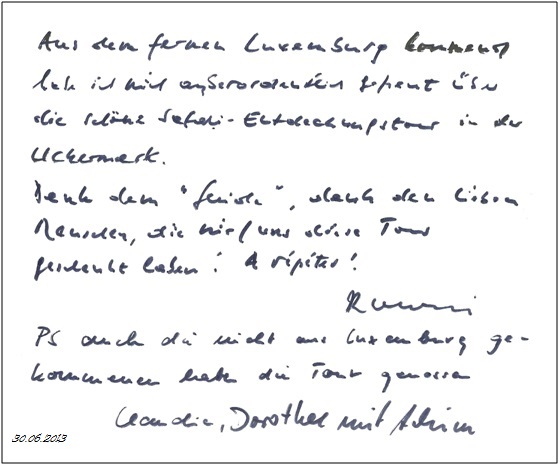 Aus dem fernen Luxemburg kommend
habe ich mich außerordentlich gefreut über
die schöne Safari-Entdeckungstour in der
Uckermark.
Dank dem "Guide", dank den lieben
Menschen, die mir/uns diese Tour
geschenkt haben! A répéter!
PS auch die nicht aus Luxemburg ge-
kommenen haben die Tour genossen
Claudia, Dorothee mit Achim
30.06.2013